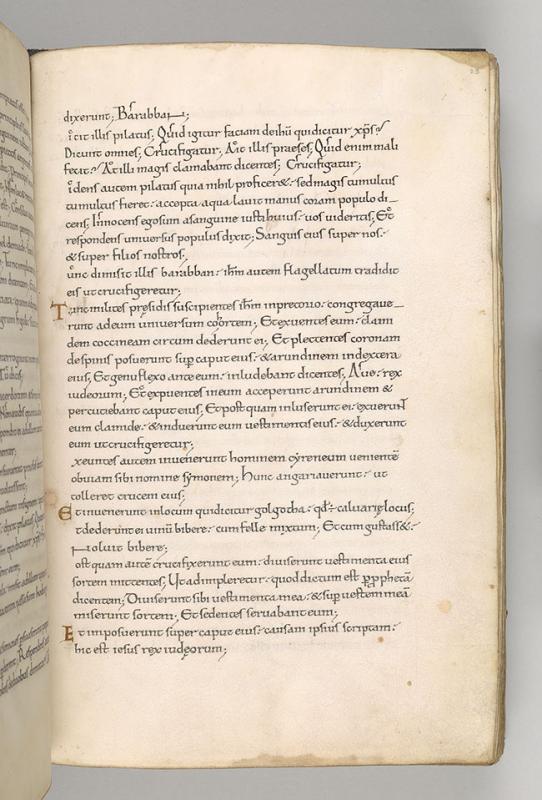 dixerunt; Barabban;
icit illis pilatus; Quid igitur faciam de ihū qui dicitur xp̄s?
Dicunt omnes; Crucifigatur; Ait illis praeses; Quid enim mali
fecit? At illi magis clamabant dicentes; Crucifigatur;
idens autem pilatus quia nihil proficer&· sed magis tumultus
tumultus fieret· accepta aqua lavit manus coram populo di-
cens; Innocens ego sum a sanguine iusti huius· vos videritis; Et
respondens universus populus dixit; Sanguis eius super nos·
& super filios nostros;
unc dimisit illis barabban· ihm̄ autem flagellatum tradidit
eis ut crucifigeretur;
Tunc milites pręsidis suscipientes ihm̄ in pretorio· congregave-
runt ad eum universum cohortem; Et exuentes eum· clami
dem coccineam circumdederunt ei; Et plectentes coronam
de spinis posuerunt sup̄ caput eius· & arundinem in dextera
eius; Et genu flexo ante eum· inludebant dicentes; Ave rex
iudeorum; Et expuentes in eum acceperunt arundinem &
percutiebant caput eius; Et postquam inluserunt ei· exuerunt
eum clamide· & induerunt eum vestimentis eius· & duxerunt
eum ut crucifigeretur;
xeuntes autem invenerunt hominem cyreneum venientē
obviam sibi nomine symonem; Hunc angariaverunt· ut
tolleret crucem eius;
Et invenerunt in locum qui dicitur golgotha· qđ ÷ calvarię locus;
t dederunt ei vinū bibere· cum felle mixtum; Et cum gustass&·
noluit bibere;
ost quam autē crucifixerunt eum· diviserunt vestimenta eius
sortem mittentes; Ut adimpleretur· quod dictum est p̄ p̄phetā
dicentem; Diviserunt sibi vestimenta mea· & sup̄ vestem meā
miserunt sortem; Et sedentes servabant eum;
Et imposuerunt super caput eius· causam ipsius scriptam·
hic est iesus rex iudęorum;